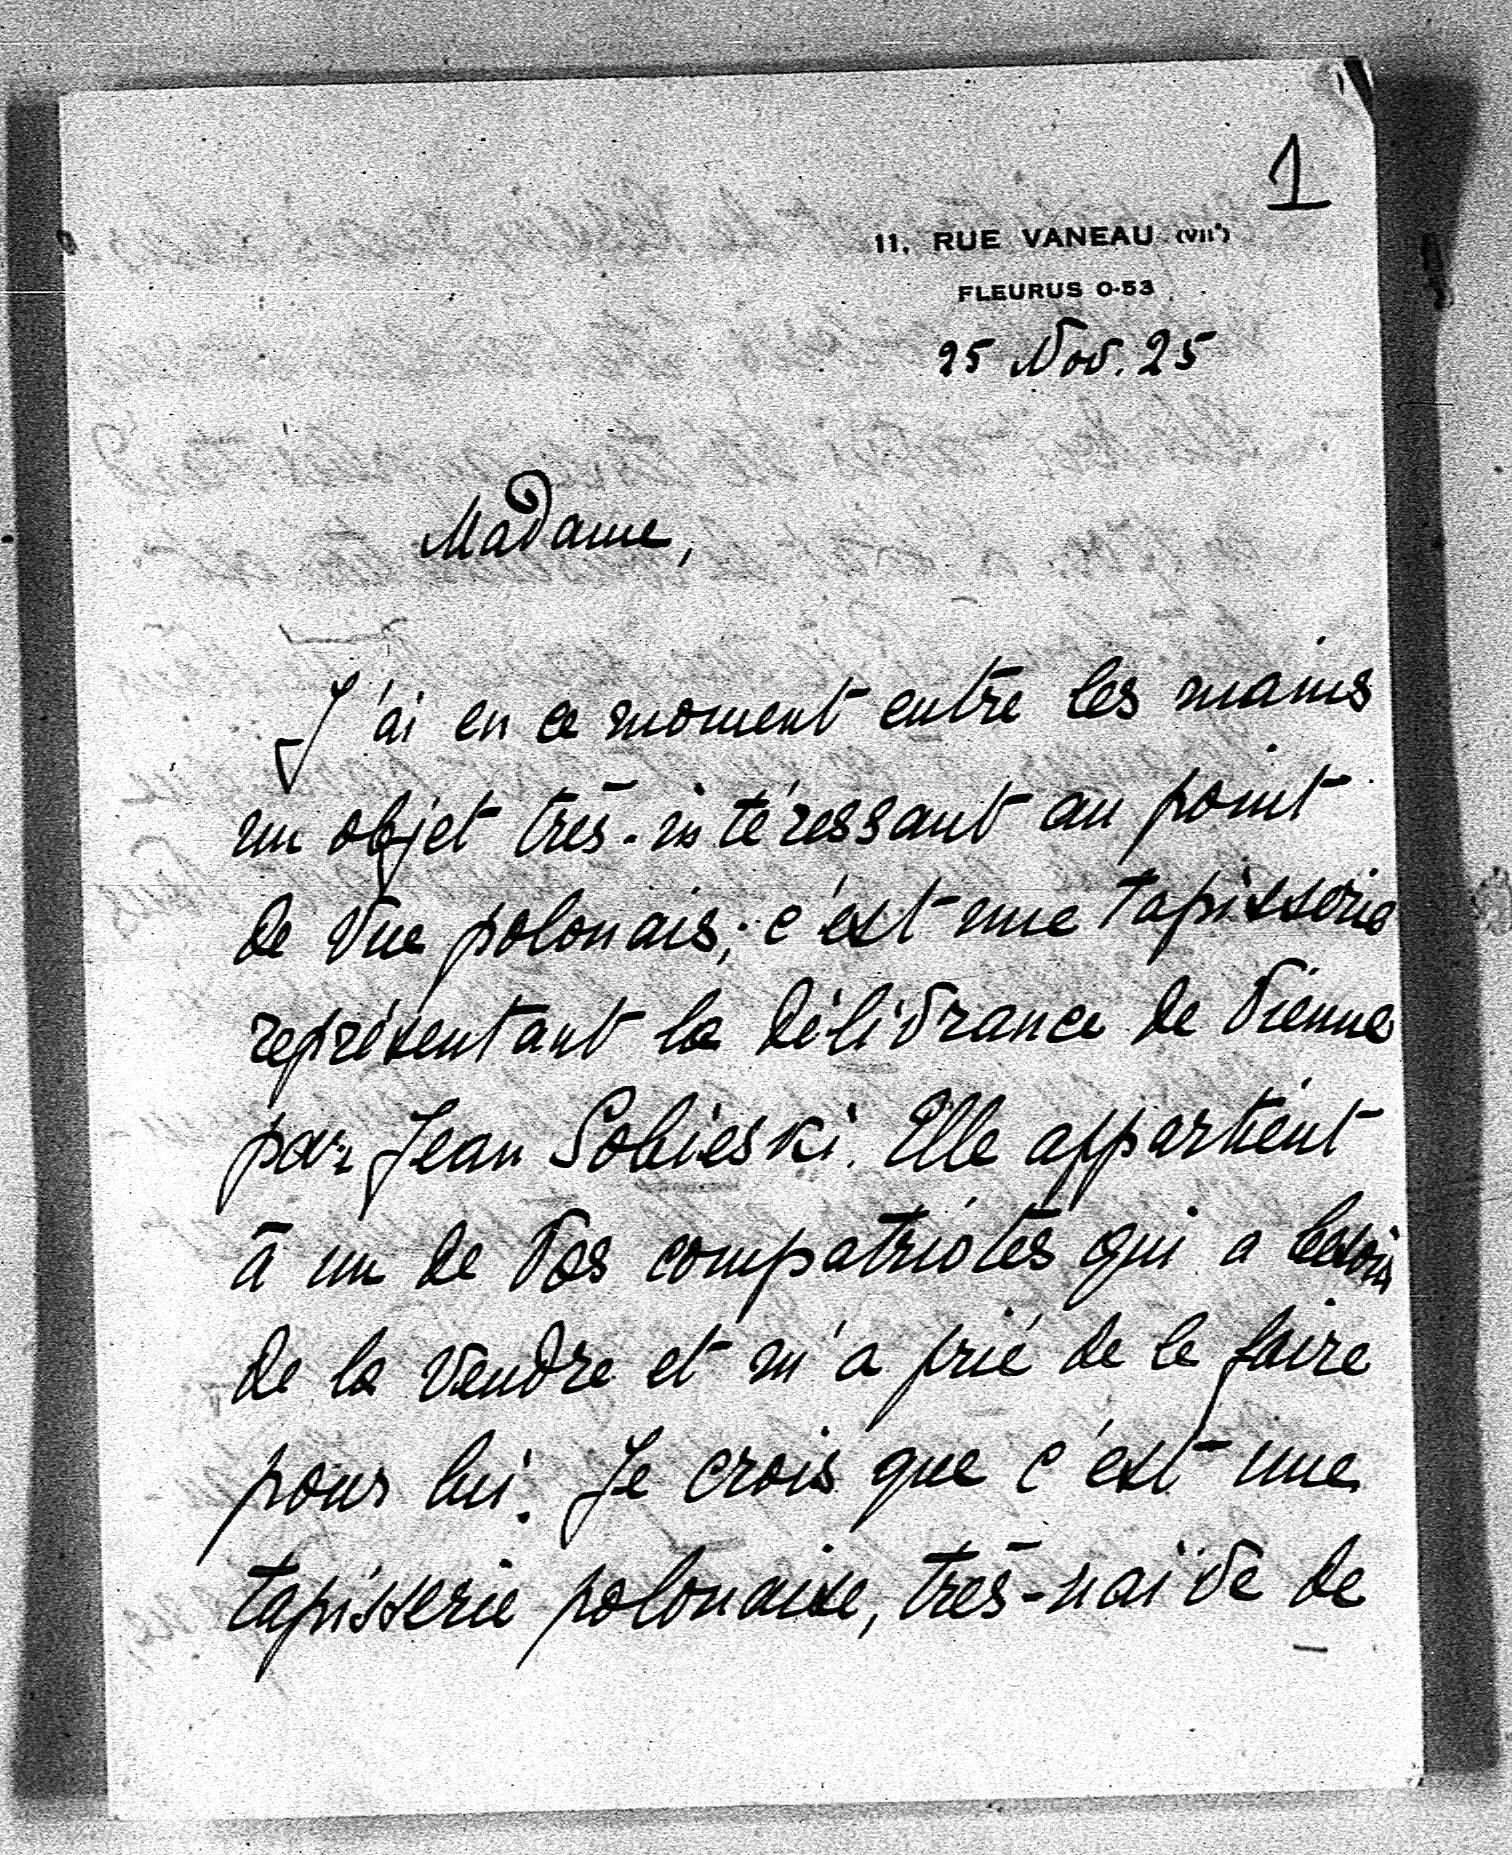 1
11, RUE VANEAU (VIIe)
FLEURUS 0-53
25 Nov. 25
Madame,
J'ai en ce moment entre les mains
un objet très-intéressant au point
de vue polonais; c'est une tapisserie
représentant la délivrance de Vienne
par Jean Sobieski. Elle appartient
à un de vos compatriotes qui a besoin
de la vendre et m'a prié de le faire
pour lui. Je crois que c'est une
tapisserie polonaise, très-naïve de